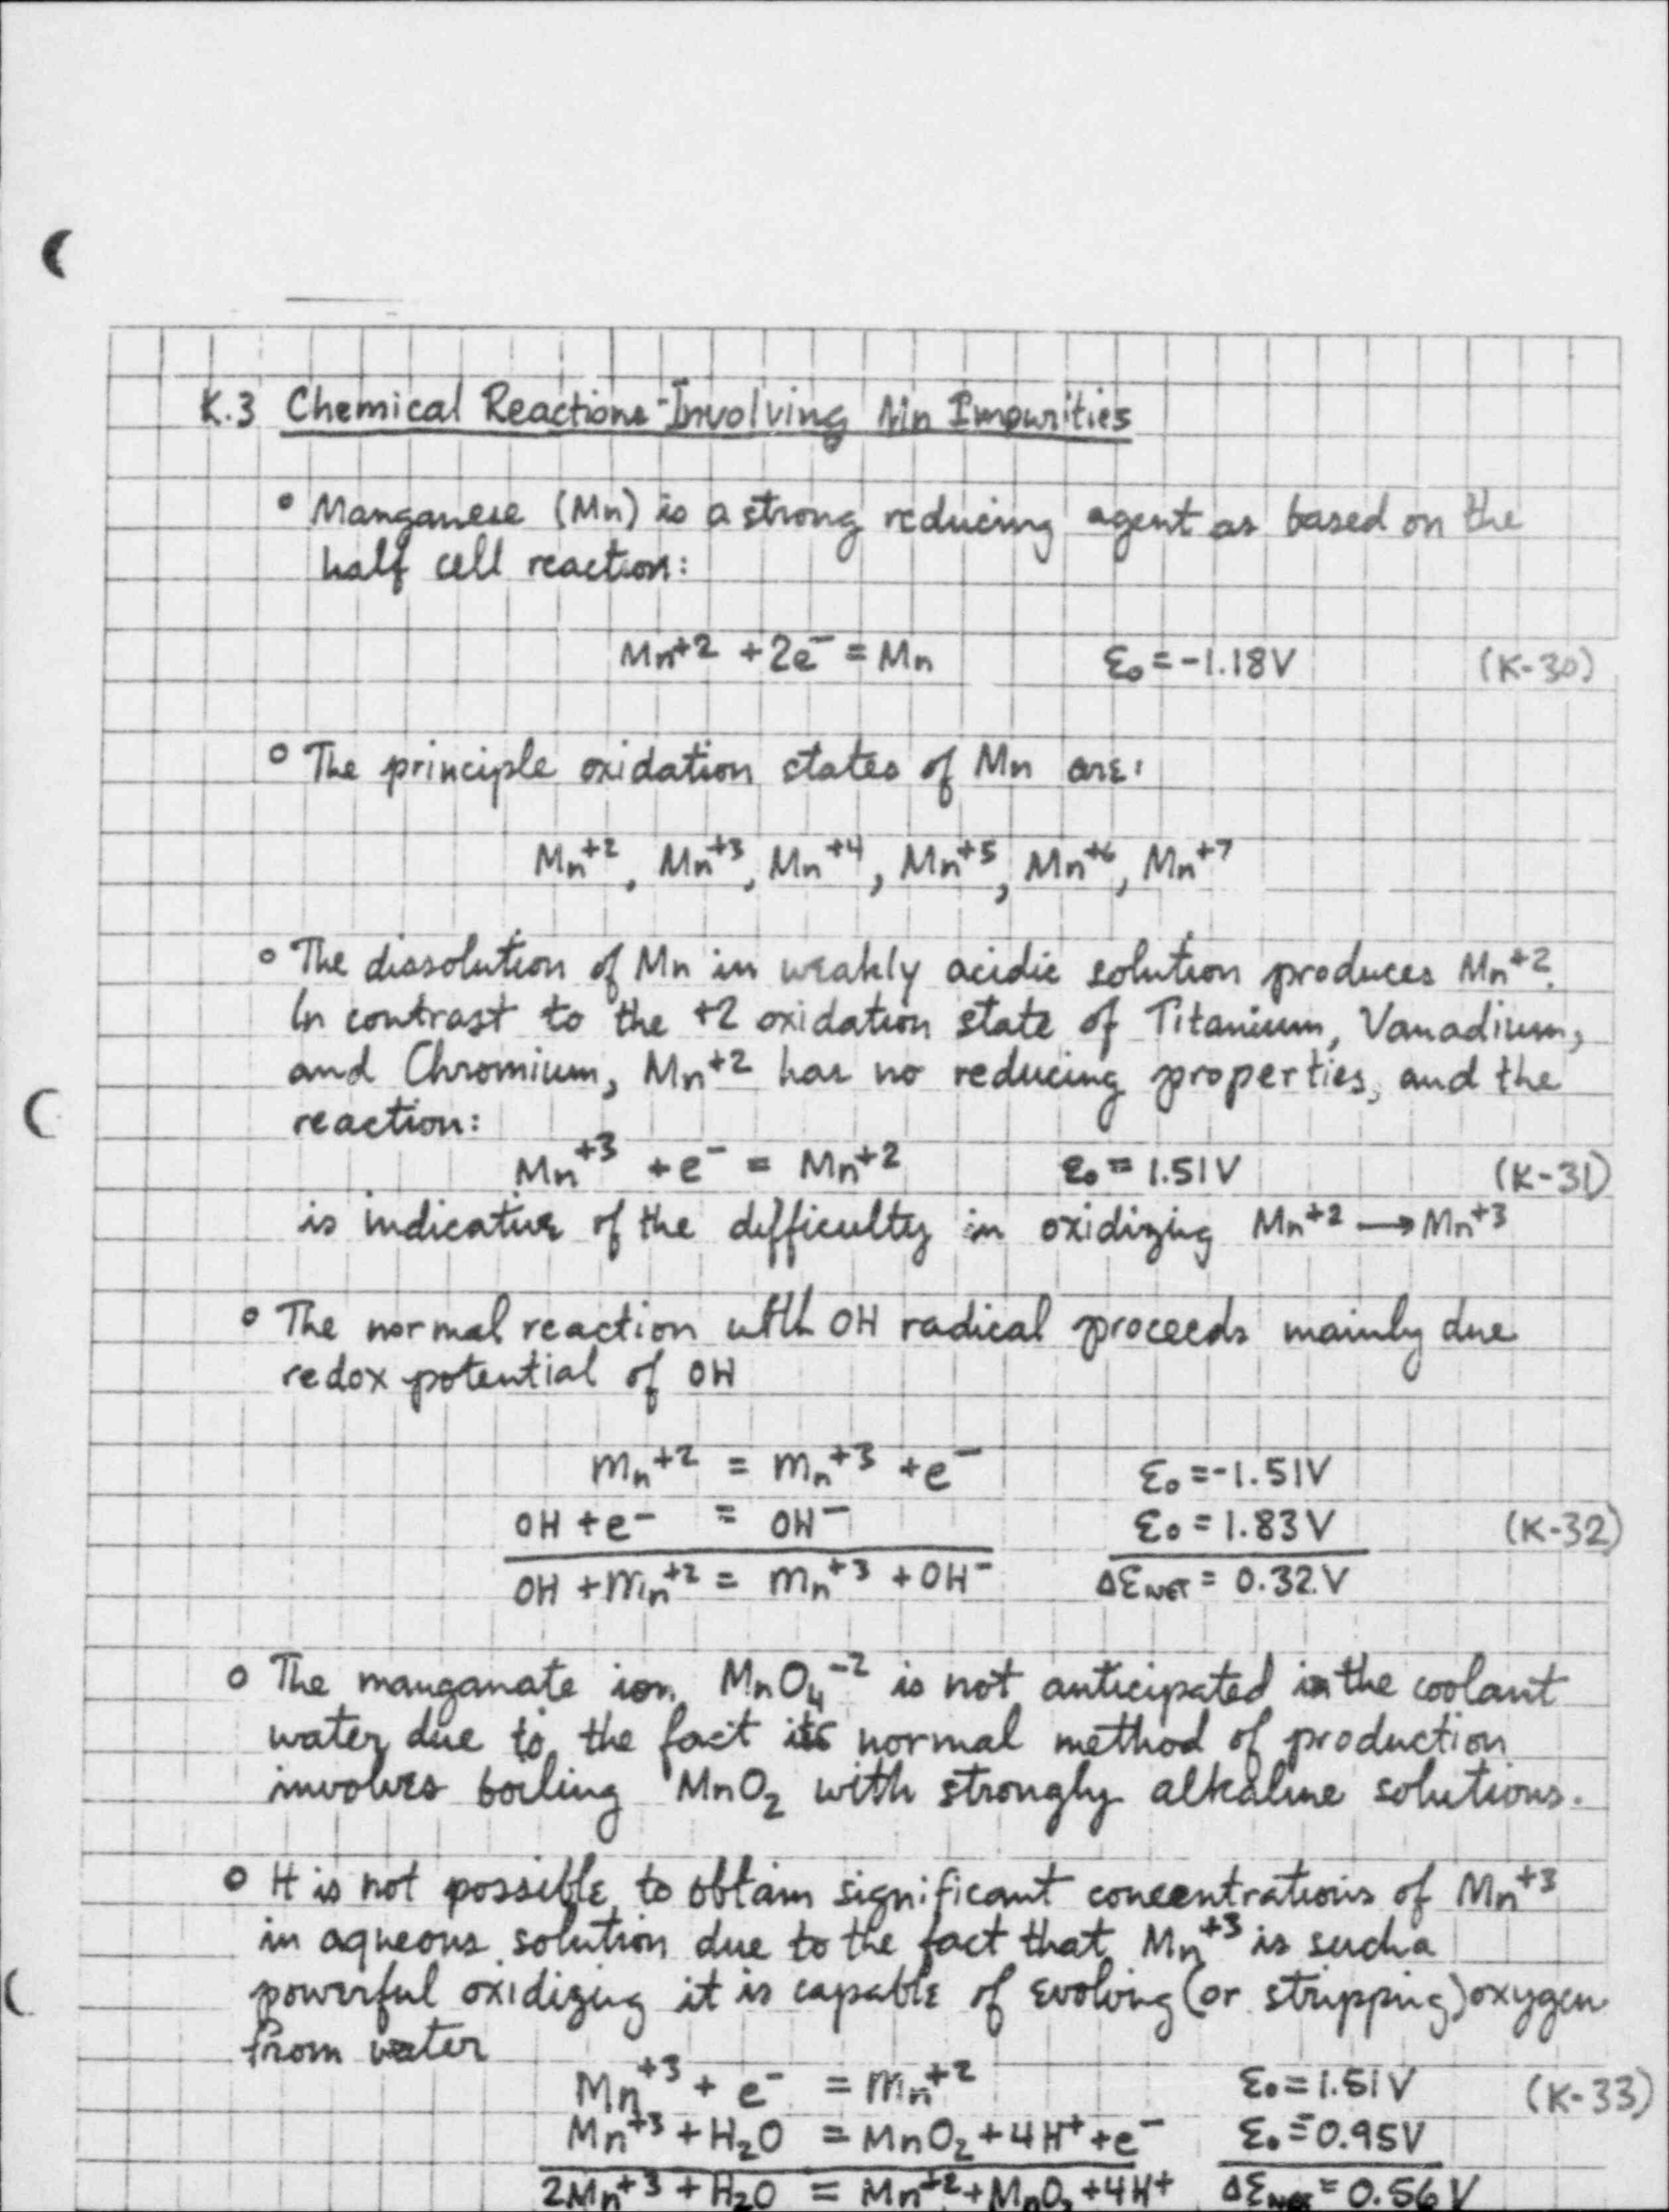 K.3 Chemical Reactions Involving Mn Impurities
° Manganese (Mn) is a strong reducing agent as based on the
half cell reaction:
Mn⁺² + 2e⁻ = Mn    Ɛ₀ = -1.18V    (K-30)
° The principle oxidation states of Mn are:
Mn⁺², Mn⁺³, Mn⁺⁴, Mn⁺⁵, Mn⁺⁶, Mn⁺⁷
° The dissolution of Mn in weakly acidic solution produces Mn⁺².
In contrast to the +2 oxidation state of Titanium, Vanadium,
and Chromium, Mn⁺² has no reducing properties, and the
reaction:
Mn⁺³ + e⁻ = Mn⁺²    Ɛ₀ = 1.51V    (K-31)
is indicative of the difficulty in oxidizing Mn⁺² → Mn⁺³
° The normal reaction with OH radical proceeds mainly due
redox potential of OH
Mn⁺² = Mn⁺³ + e⁻    Ɛ₀ = -1.51V
OH + e⁻ = OH⁻    Ɛ₀ = 1.83V    (K-32)
OH + Mn⁺² = Mn⁺³ + OH⁻    ΔƐNET = 0.32V
° The manganate ion MnO₄⁻² is not anticipated in the coolant
water due to the fact its normal method of production
involves boiling MnO₂ with strongly alkaline solutions.
° It is not possible to obtain significant concentrations of Mn⁺³
in aqueous solution due to the fact that Mn⁺³ is such a
powerful oxidizing it is capable of evolving (or stripping) oxygen
from water
Mn⁺³ + e⁻ = Mn⁺²    Ɛ₀ = 1.51V    (K-33)
Mn⁺³ + H₂O = MnO₂ + 4H⁺ + e⁻    Ɛ₀ = 0.95V
2Mn⁺³ + H₂O = Mn⁺² + MnO₂ + 4H⁺    ΔƐNET = 0.56V